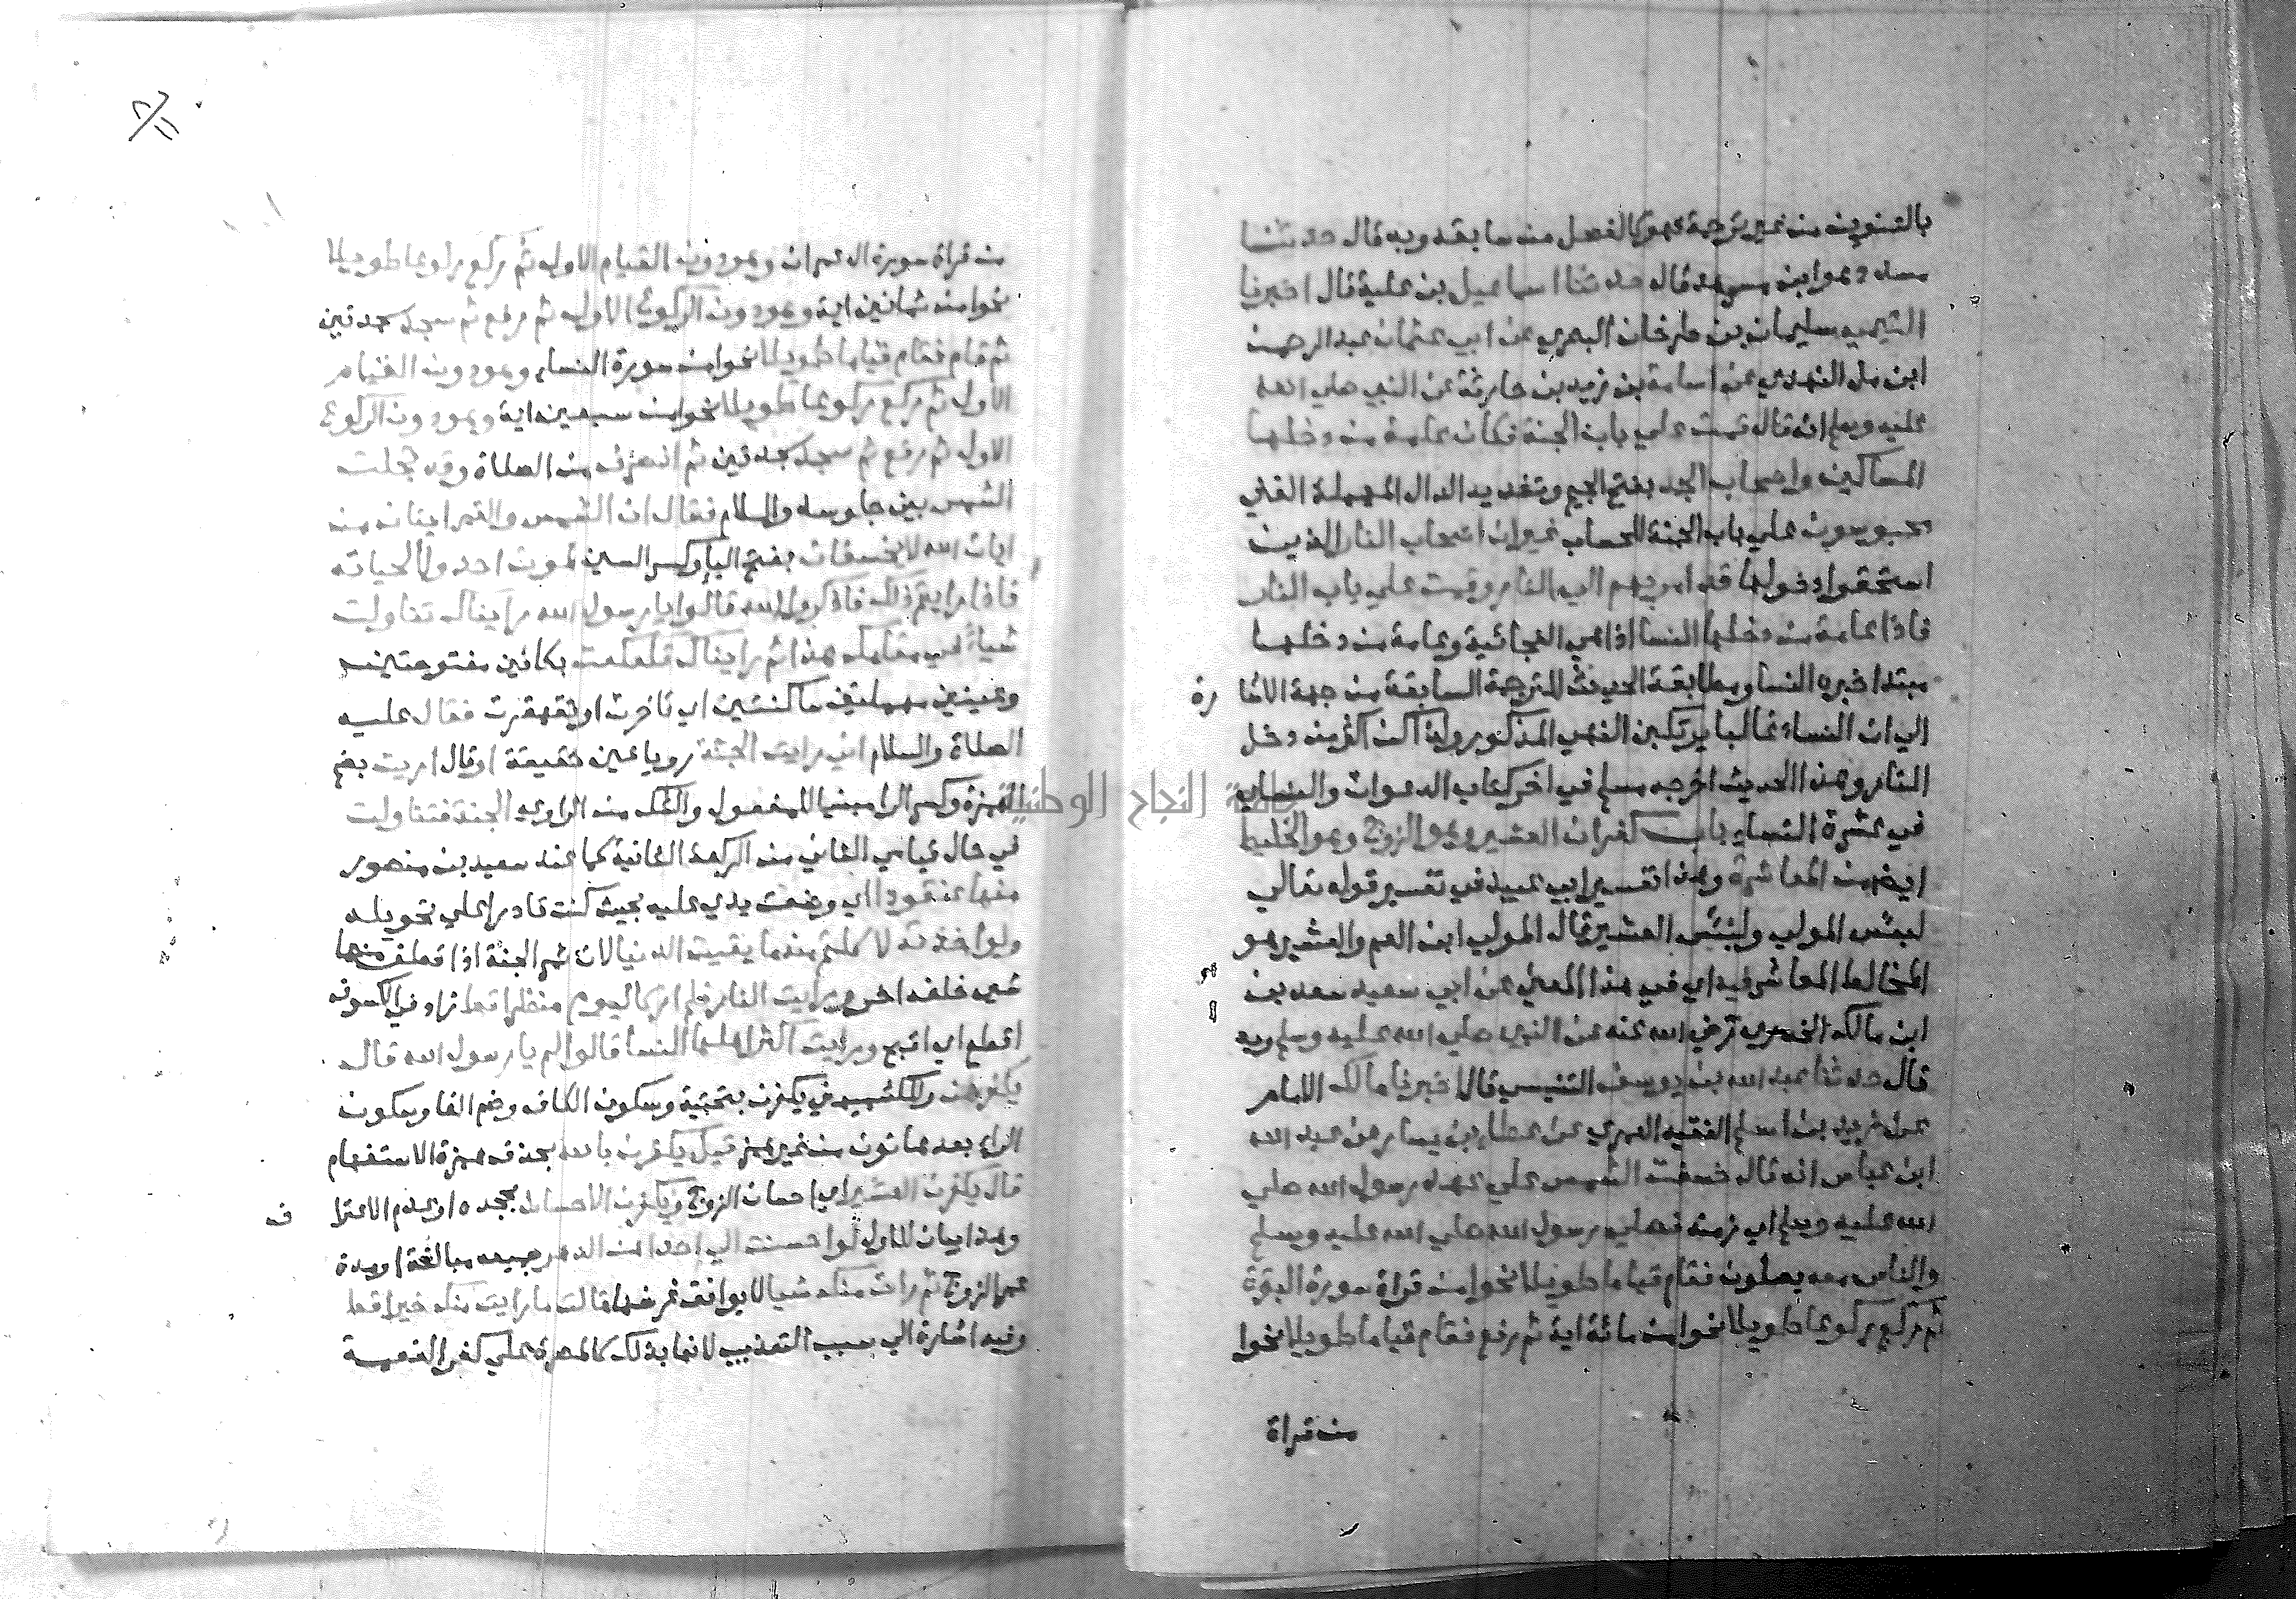 بالتنوين من غير ترجمة فهو كالفصل من سابقه وبه قال حدثنا
مسدد هو ابن مسرهد قال حدثنا اسماعيل بن علية قال اخبرنا
التيمي سليمان بن طرخان البصري عن ابي عثمان عبد الرحمن
ابن مل النهدي عن اسامة بن زيد بن حارثة عن النبي صلي الله
عليه وسلم انه قال قمت علي باب الجنة فكان عامة من دخلها
المساكين واصحاب الجد بفتح الجيم وتشديد الدال المهملة الغني
محبوسون علي باب الجنة للحساب غير ان اصحاب النار الذين
استحقوا دخولها قد امر بهم الي النار وقمت علي باب النار
فاذا عامة من دخلها النسا اذا هي الفجائية وعامة من دخلها
مبتدا خبره النسا ومطابقة الحديث للترجمة السابقة من جهة الاشا رة
الي ان النساء غالبا يرتكبن النهي المذكور ولذا كن اكثر من دخل
النار وهذا الحديث اخرجه مسلم في اخر كتاب الدعوات والنساي
في عشرة النساء باب كفران العشير وهو الزوج وهو الخليط
ايضا من المعاشرة وهذا تفسير ابي عبيد في تفسير قوله تعالي
لبئس المولي ولبئس العشير قال المولي ابن العم والعشير هو
المخالط المعاشر فيه اي في هذا المعني عن ابي سعيد سعد بن
ابن مالك الخدري رضي الله عنه عن النبي صلي الله عليه وسلم وبه
قال حدثنا عبد الله بن يوسف التنيسي قال اخبرنا مالك الامام
عن زيد بن اسلم الفقيه العمري عن عطاء بن يسار عن عبد الله
ابن عباس انه قال خسفت الشمس علي عهد رسول الله صلي
الله عليه وسلم اي زمنه فصلي رسول الله صلي الله عليه وسلم
والناس معه يصلون فقام قياما طويلا نحوا من قراة سورة البقرة
ثم ركع ركوعا طويلا نحوا من مائة اية ثم رفع فقام قياما طويلا نحوا
من قراة
من قراة سورة ال عمران وهو دون القيام الاول ثم ركع ركوعا طويلا
نحوا من ثمانين اية وهو دون الركوع الاول ثم رفع ثم سجد سجدتين
ثم قام فقام قياما طويلا نحوا من سورة النساء وهو دون القيام
الاول ثم ركع ركوعا طويلا نحوا من سبعين اية وهو دون الركوع
الاول ثم رفع ثم سجد سجدتين ثم انصرف من الصلاة وقد تجلت
الشمس بين جلوسه والسلام فقال ان الشمس والقمر ايتان من
ايات الله لا يخسفان بفتح اليا وكسر السين لموت احد ولا لحياته
فاذا رايتم ذلك فاذكروا الله قالوا يا رسول الله رايناك تناولت
شيا في مقامك هذا ثم رايناك تكعكعت بكافين مفتوحتين
وعينين مهملتين ساكنتين اي تاخرت او تقهقرت فقال عليه
الصلاة والسلام اني رايت الجنة رويا عين حقيقة او قال اريت بضم
الهمزة وكسر الرا مبنيا للمفعول والشك من الراوي الجنة فتناولت
في حال قيامي الثاني من الركعة الثانية كما عند سعيد بن منصور
منها عنقودا اي وضعت يدي عليه بحيث كنت قادرا علي تحويله
ولو اخذته لاكلتم منه ما بقيت الدنيا لان ثمر الجنة اذا قطف منها
شي خلفه اخر ورايت النار فلم ار كاليوم منظرا قط زاد في الكسوف
افظع اي اقبح ورايت اكثر اهلها النسا قالوا لم يا رسول الله قال
بكفرهن وللكشميهني يكفرن بتحتية وسكون الكاف وضم الفا وسكون
الراء بعدها نون من غير همز قيل يكفرن بالله بحذف همزة الاستفهام
قال يكفرن العشير اي احسان الزوج ويكفرن الاحسان بجحده او عدم الاعترا ف
وهذا بيان للاول لو احسنت الي احداهن الدهر جميعه مبالغة او مدة
عمر الزوج ثم رات منك شيا لا يوافق غرضها قالت ما رايت منك خيرا قط
وفيه اشارة الي سبب التعذيب لانها بذلك كالمصرة علي كفر النعمة
جامعة النجاح الوطنية